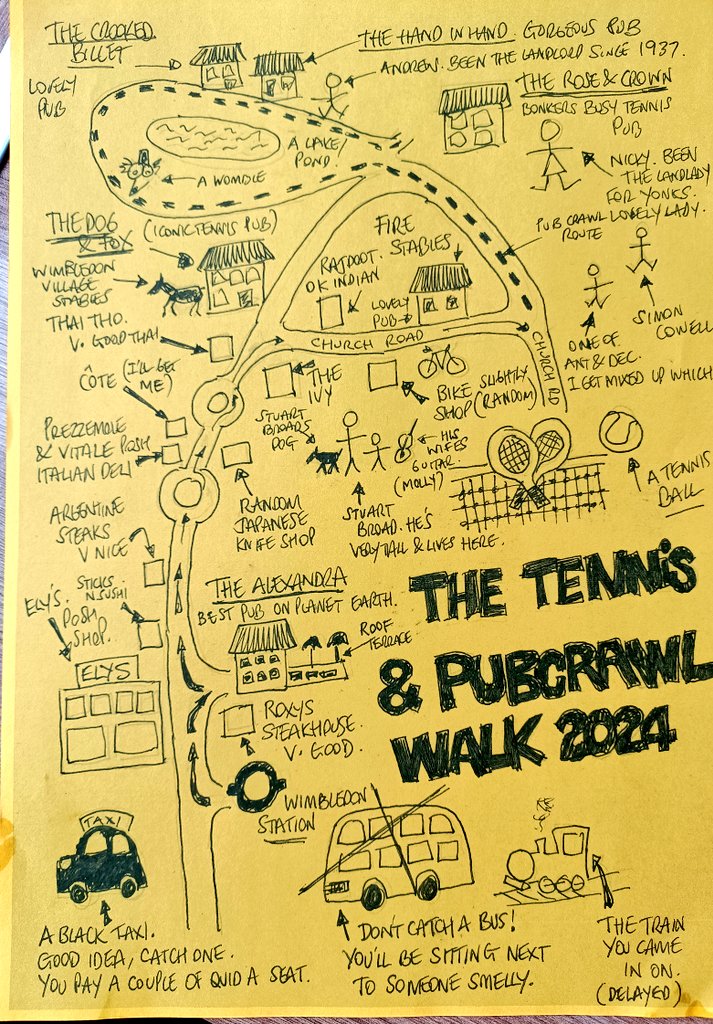 THE CROOKED
BILLET
LOVELY
PUB
THE HAND IN HAND. GORGEOUS PUB
ANDREW. BEEN THE LANDLORD SINCE 1937.
THE ROSE & CROWN
BONKERS BUSY TENNIS
PUB
NICKY. BEEN
THE LANDLADY
FOR YONKS.
LOVELY LADY.
A LAKE/
POND!
A WOMBLE
PUB CRAWL
ROUTE
THE DOG
& FOX
(ICONIC TENNIS PUB)
WIMBLEDON
VILLAGE
STABLES
FIRE
STABLES
RAJDOOT.
OK INDIAN
LOVELY
PUB
SIMON
COWELL
ONE OF
ANT & DEC.
I GET MIXED UP WHICH
THAI THO.
V. GOOD THAI
CHURCH ROAD
CHURCH RD
CÔTE (I'LL GET
ME)
THE
IVY
BIKE SLIGHTLY
SHOP (RANDOM)
PREZZEMOLE
& VITALE POSH
ITALIAN DELI
STUART
BROADS
DOG
HIS
WIFES
GUITAR
(MOLLY)
RANDOM
JAPANESE
KNIFE SHOP
STUART
BROAD. HE'S
VERY TALL & LIVES HERE.
A TENNIS
BALL
ARGENTINE
STEAKS
V NICE
STICKS
N SUSHI
ELY'S.
POSH
SHOP.
ELYS
THE ALEXANDRA
BEST PUB ON PLANET EARTH.
ROOF
TERRACE
THE TENNIS
& PUBCRAWL
WALK 2024
ROXYS
STEAKHOUSE.
V. GOOD.
WIMBLEDON
STATION
TAXI
A BLACK TAXI.
GOOD IDEA, CATCH ONE.
YOU PAY A COUPLE OF QUID A SEAT.
DON'T CATCH A BUS!
YOU'LL BE SITTING NEXT
TO SOMEONE SMELLY.
THE TRAIN
YOU CAME
IN ON.
(DELAYED)